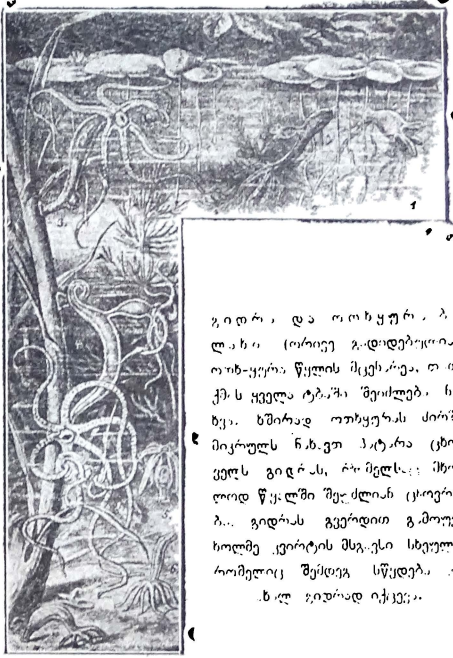 1
ჰიდრა და ოთხყურა ბ
ლახი (ორივე გადიდებულია
ოთხ-ყურა წყლის მცენარეა,
ქმის ყველა ტბაში შეიძლება ნ
ხვა. ხშირად ოთხყურას ძირზ
მიკრულს ნახავთ პატარა ცხო
ველს გიდრას, რომელსაც მხო
ლოდ წყალში შეუძლიან ცხოვრ
გიდრას გვერდით გამოუ
ხოლმე კვირტის მსგავსი სხეულ
რომელიც შემდეგ სწყდება
ახალ გიდრად იქცევა.